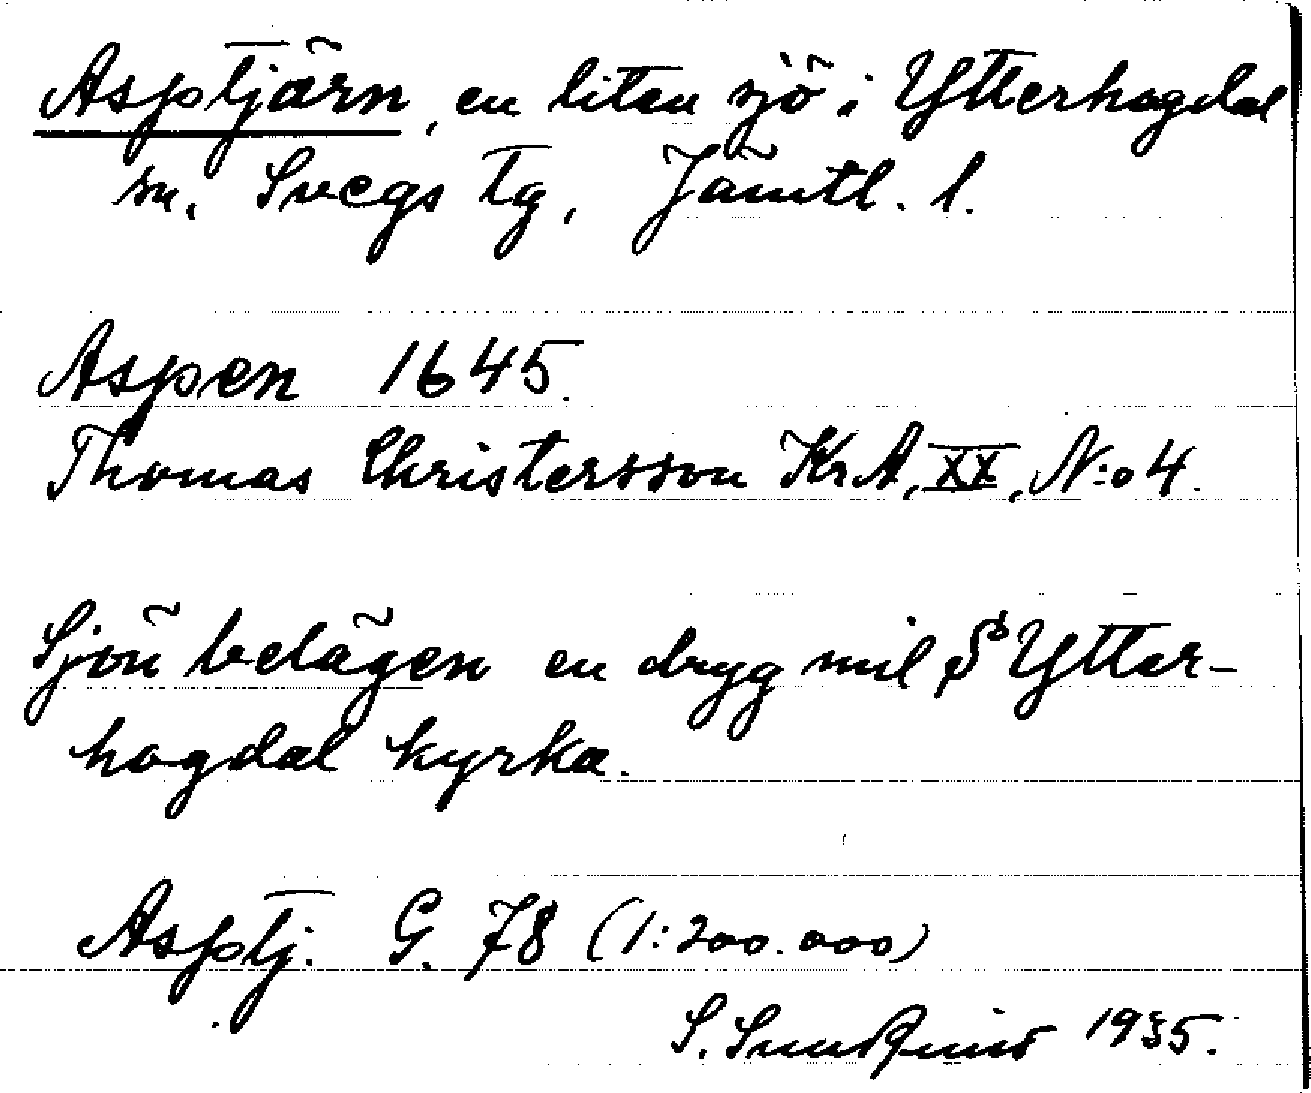 Asptjärn, en liten sjö i Ytterhogdal
sn. Svegs tg, Jämtl. l.
Aspen 1645.
Thomas Christersson KrA, XX, N:o 4.
Sjön belägen en dryg mil S Ytter-
hogdal kyrka.
Asptj. G. 78 (1:200.000)
S. 1935.